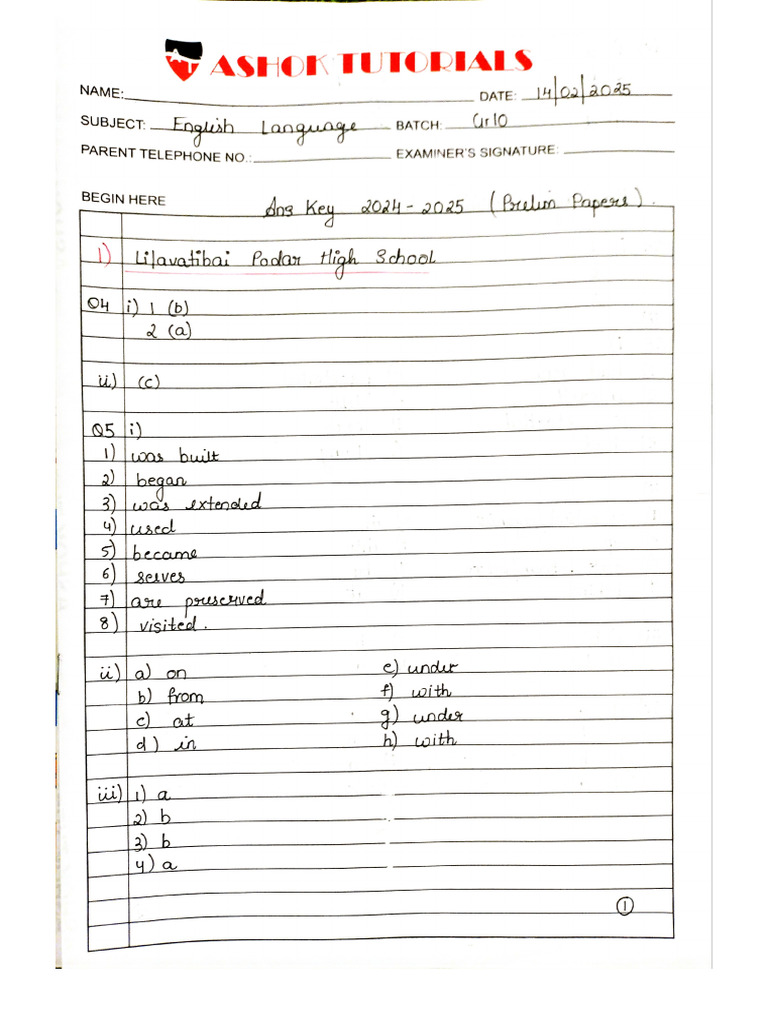 AT ASHOK TUTORIALS
NAME:
DATE: 14/02/2025
SUBJECT: English Language BATCH: Gr10
PARENT TELEPHONE NO.: EXAMINER'S SIGNATURE:
BEGIN HERE
Ans Key 2024-2025 (Prelim Papers).
1) Lilavatibai Podar High School
Q4 i) 1 (b)
2 (a)
ii) (c)
Q5 i)
1) was built
2) began
3) was extended
4) used
5) became
6) serves
7) are preserved
8) visited.
ii) a) on e) under
b) from f) with
c) at g) under
d) in h) with
iii) 1) a
2) b
3) b
4) a
1